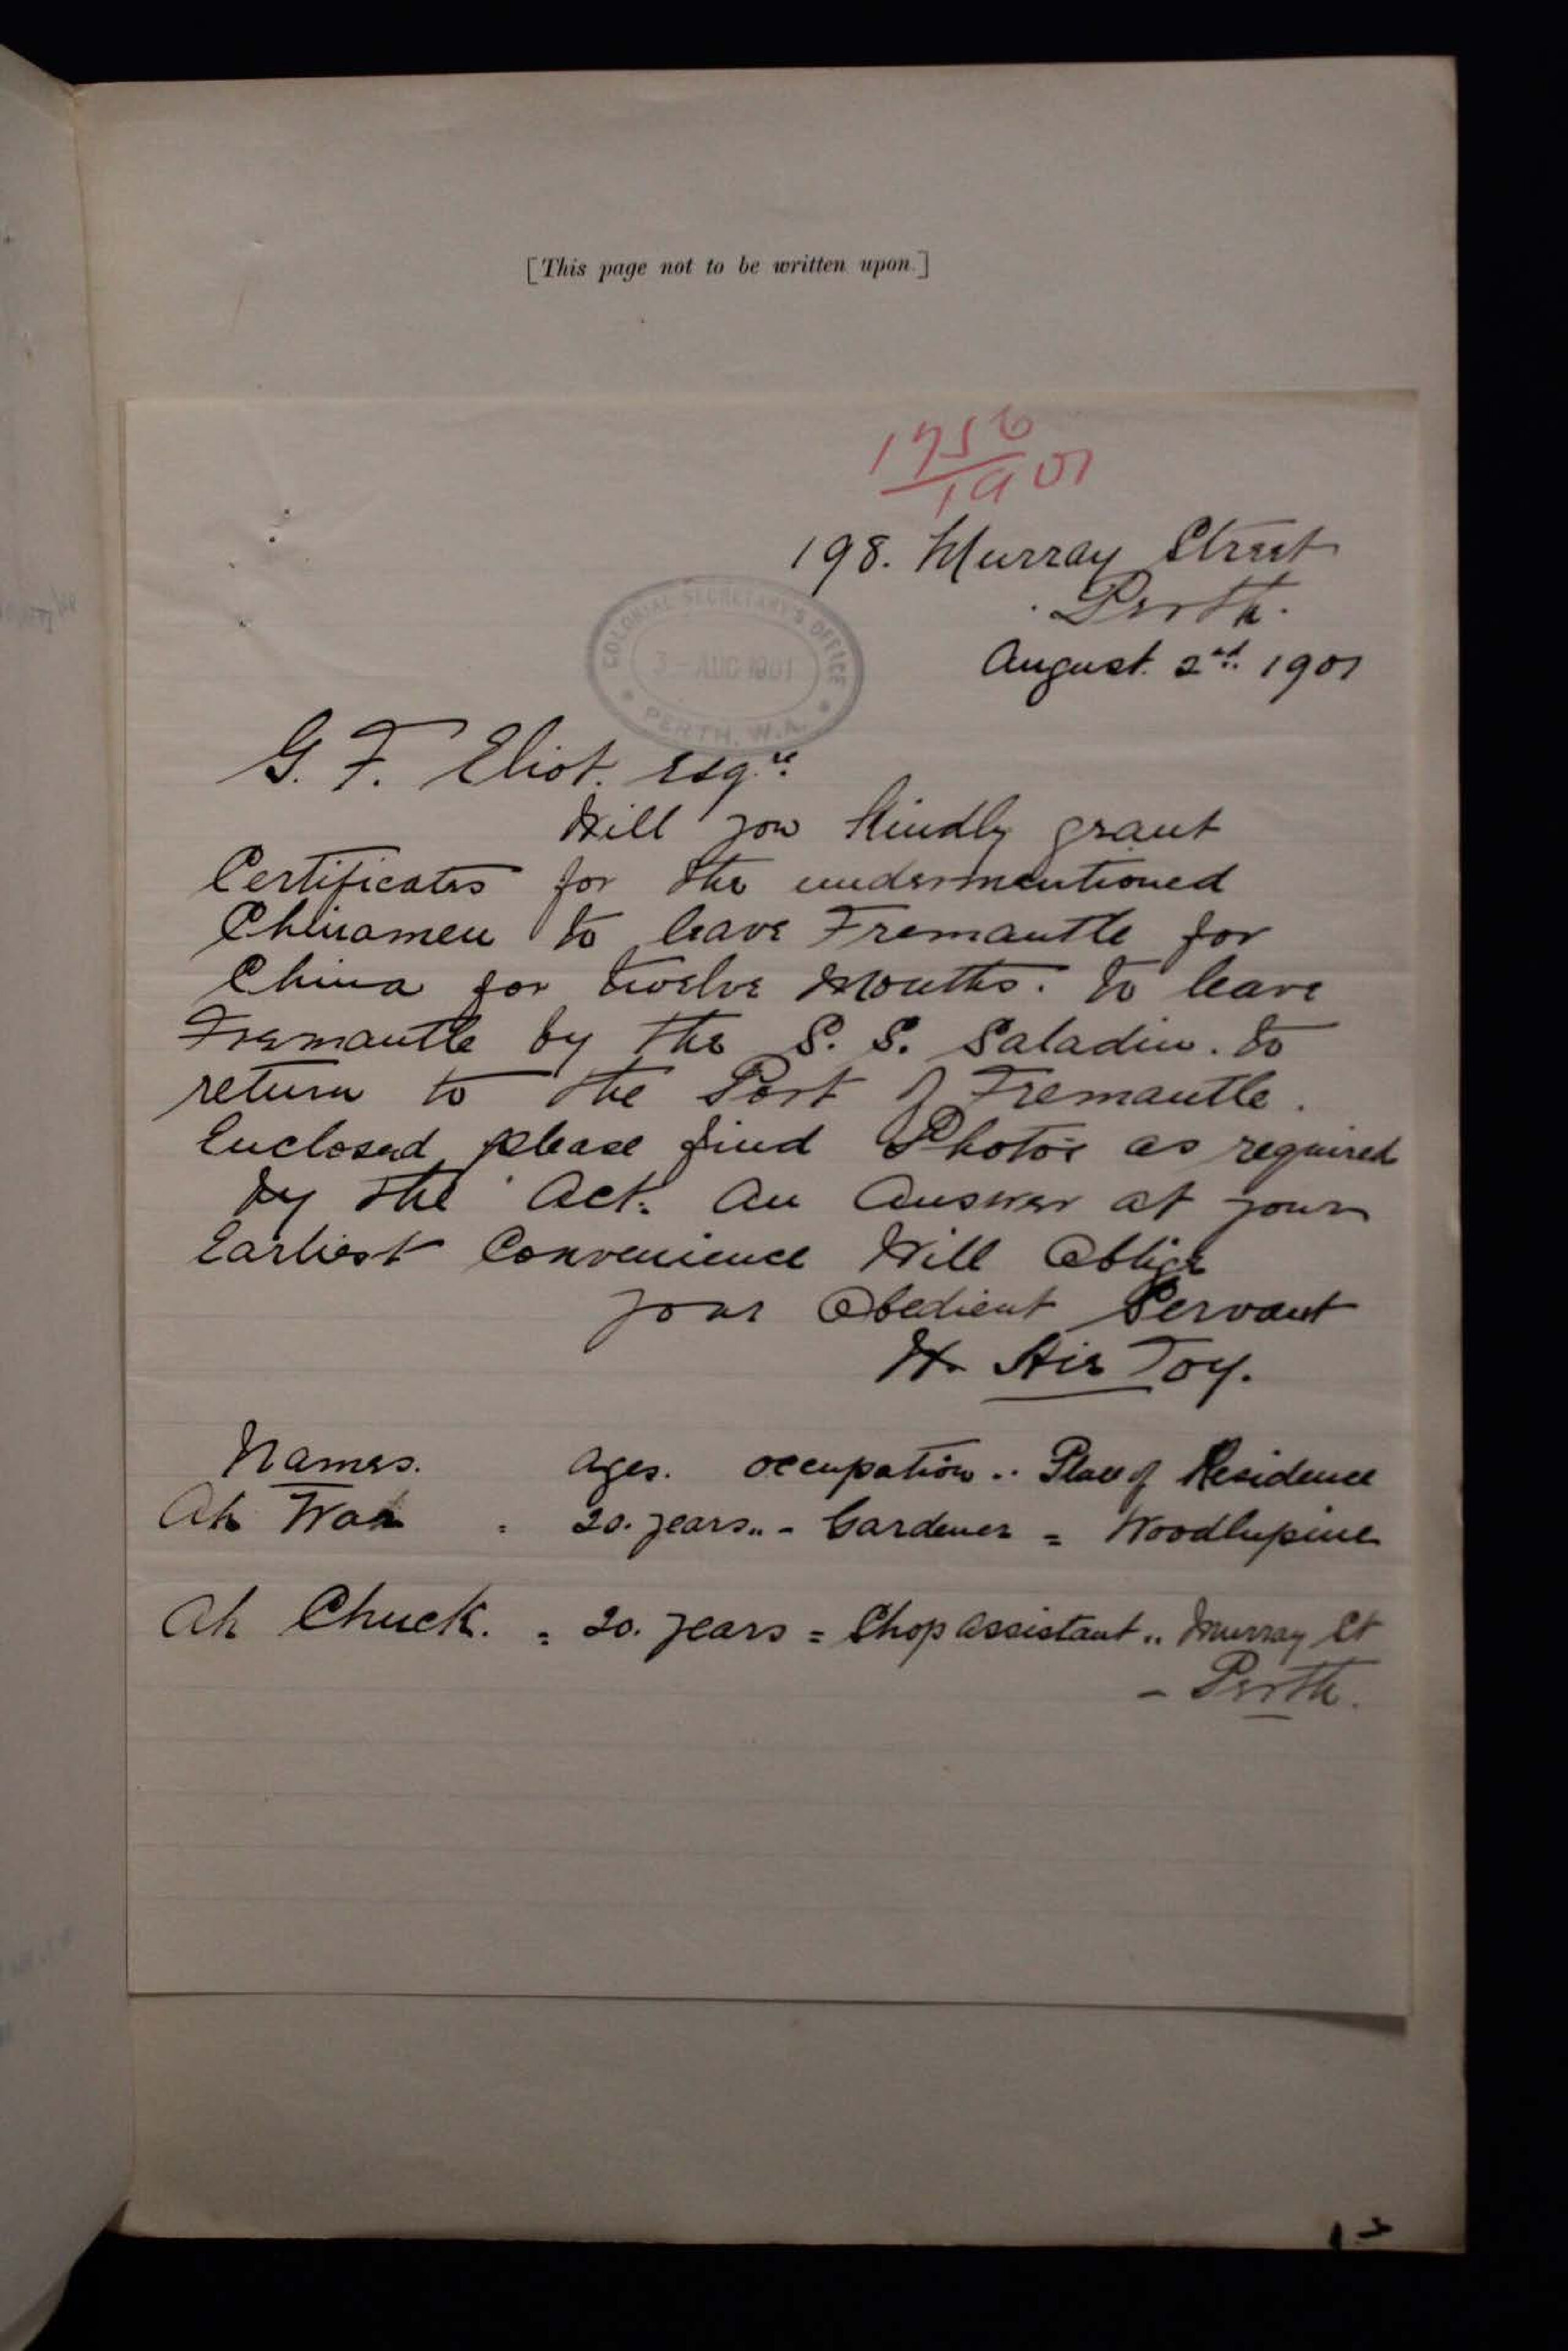 [This page not to be written upon.]
1756
1901
198. Murray Street
Perth.
COLONIAL SECRETARY'S OFFICE
3 - AUG 1901
PERTH, W.A.
August. 2nd. 1901
G. F. Eliot. Esqre.
Will you Kindly grant
Certificates for the undermentioned
Chinamen to leave Fremantle for
China for twelve Months. to leave
Fremantle by the S. S. Saladin. to
return to the Port of Fremantle.
Enclosed please find Photos as required
by the Act. An Answer at your
Earliest Convenience Will Oblige
your Obedient Servant
H. Hie Toy.
Names. Ages. Occupation .. Place of Residence
Ah Wah = 20. years .. - Gardener = Woodlupine
Ah Chuck. = 20. years = Shop assistant .. Murray St
- Perth.